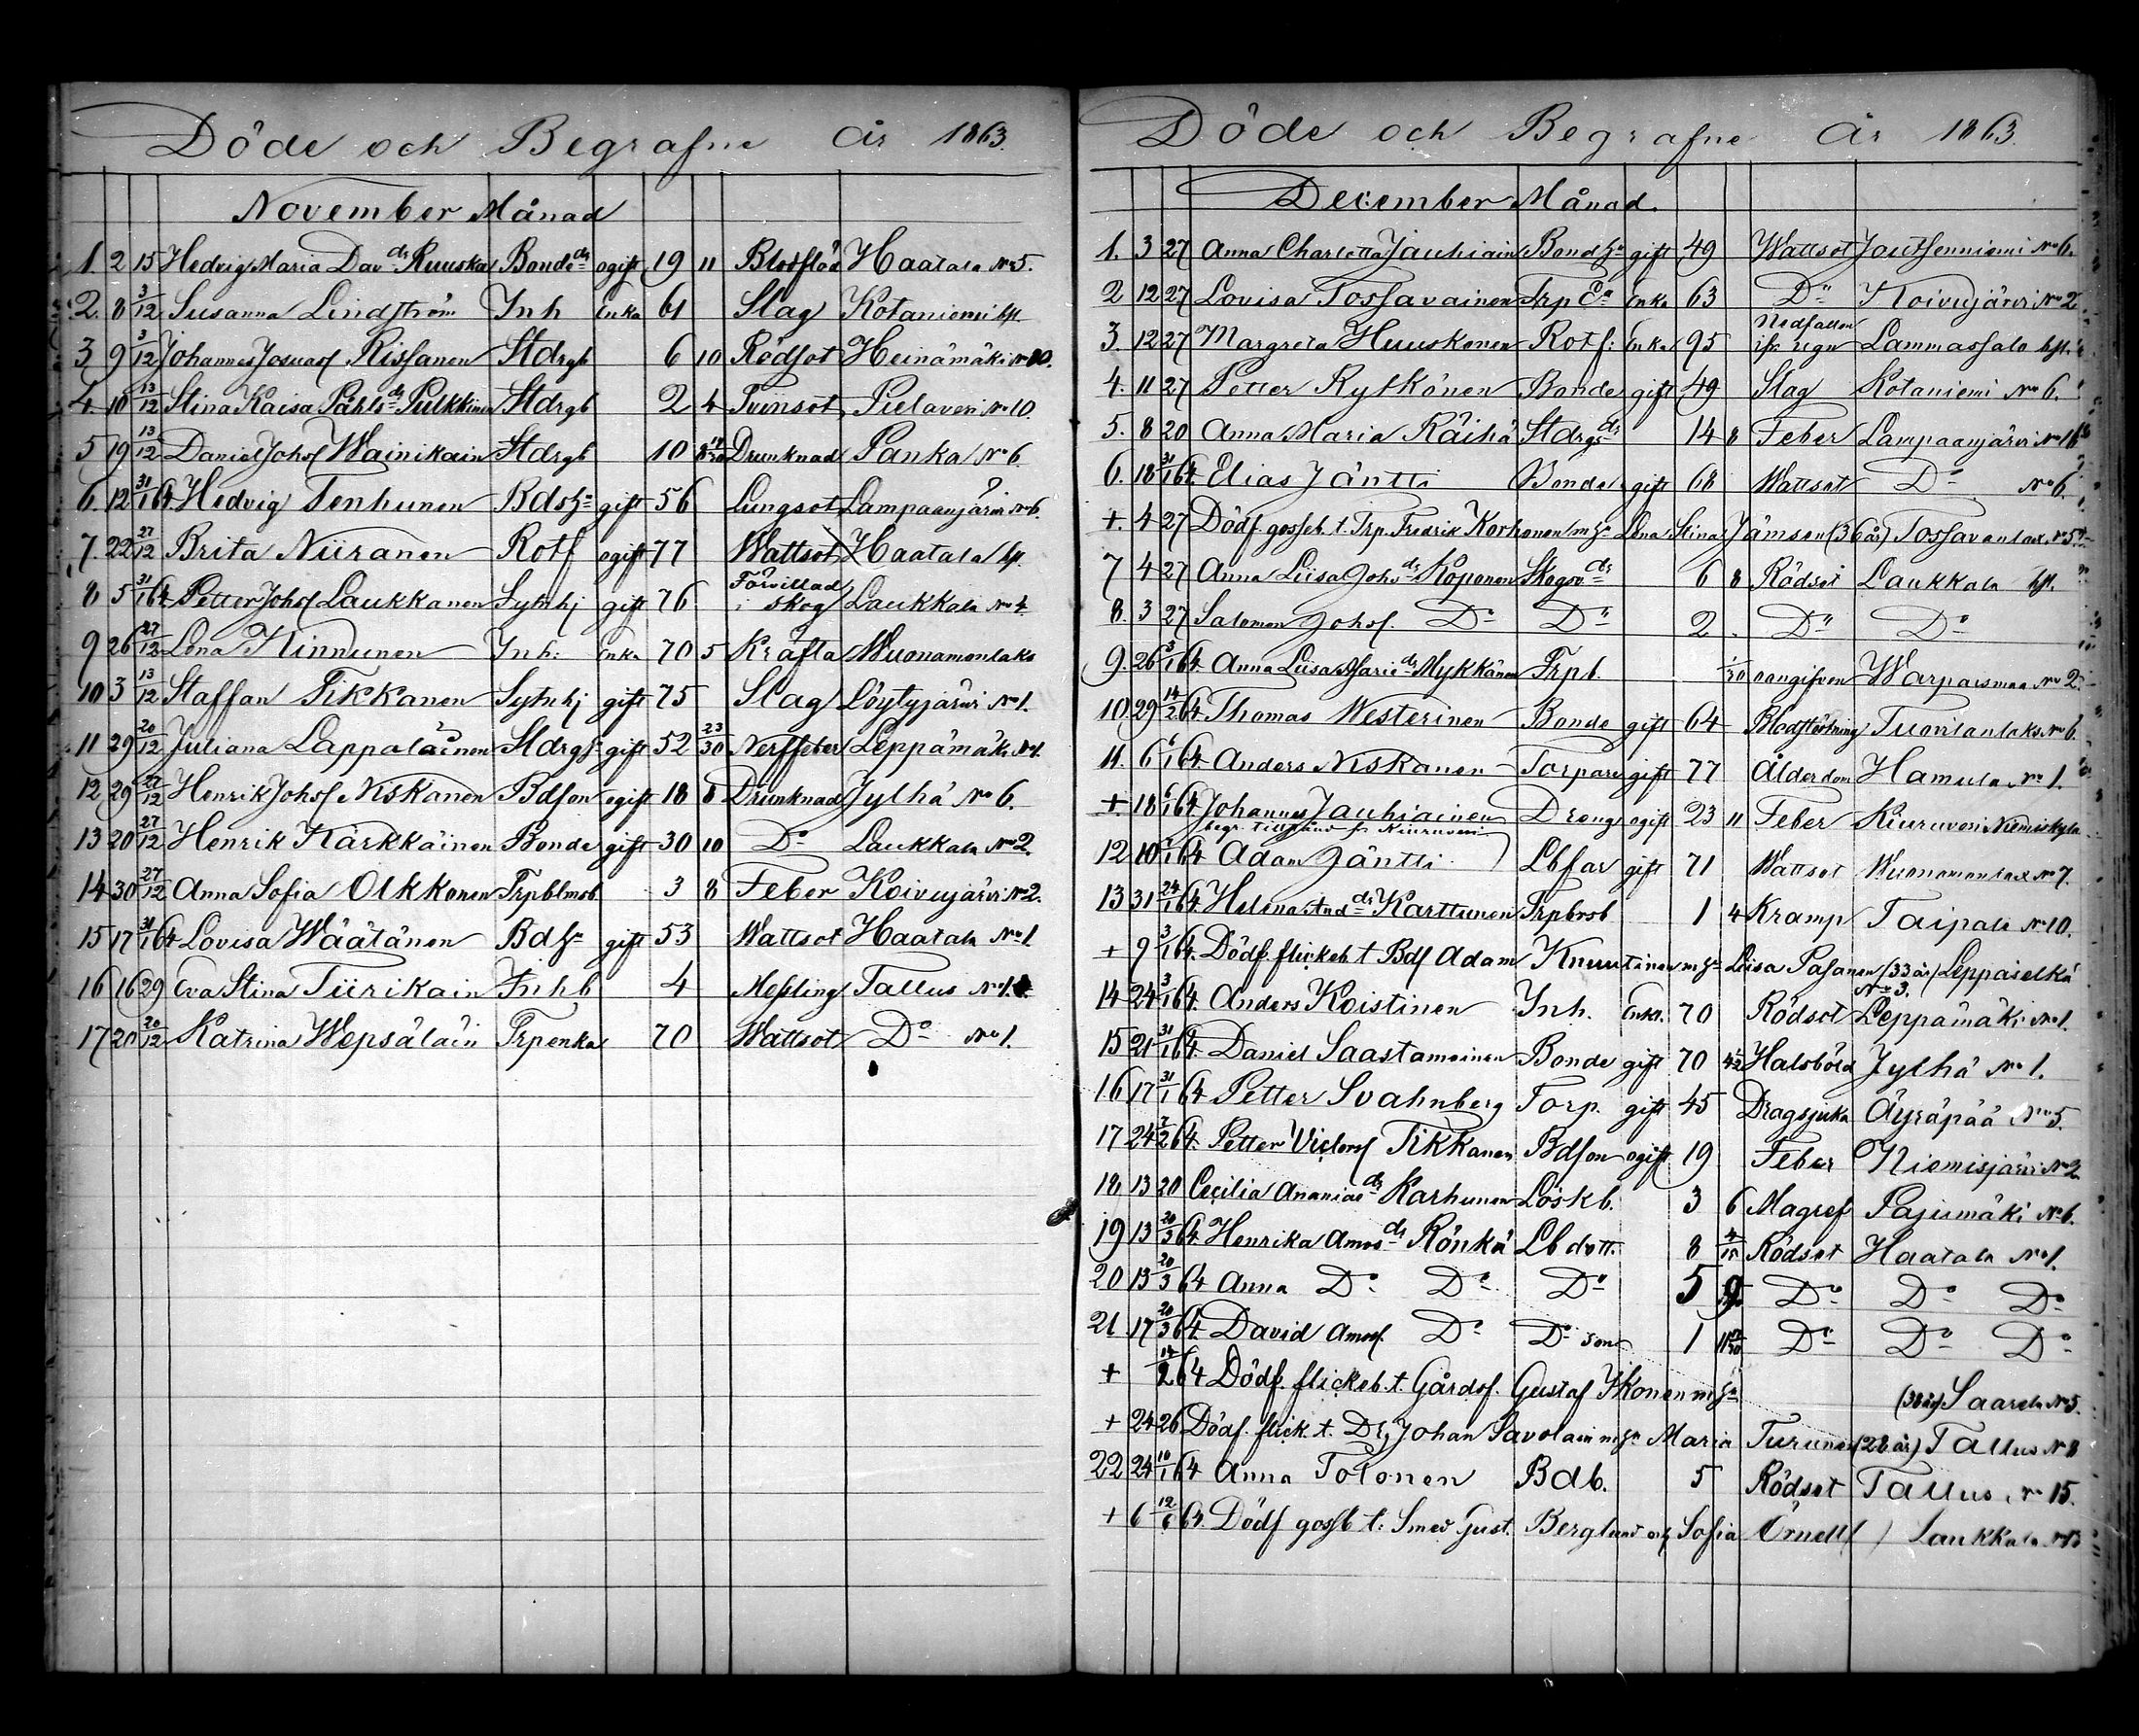 Döde och Begrafne År 1863.
November Månad
1. 2 15 Hedvig Maria Dav.dr Ruuska Bonde dr ogift 19 11 Blodflöd Haatala No 5.
2. 8 3/12 Susanna Lindström Inh Enka 61 Slag Kotaniemi
3 9 3/12 Johannes Josuasf Rissanen Stdrgb 6 10 Rödsot Heinämäki No 10.
4. 10 13/12 Stina Kaisa Påhlsdr Pulkkinen Stdrgb 2 4 Tvinsot Pielaveri No 10.
5 19 13/12 Daniel Johsf Wainikain Stdrgb 10 Drunknad Panka No 6.
6. 12 31/1 64. Hedvig Tenhunen Bdshu gift 56 Lungsot Lampaanjärvi No 6.
7. 22 27/12 Brita Niiranen Rotf ogift 77 Wattsot Haatala
8 5 31/1 64 Petter Johsf Laukkanen Sytnhj gift 76 Förvillad i skog Laukkala No 4.
9 26 27/12 Lena Kinnunen Inh: Enka 70 5 Kräfta Wuonamonlaks
10 3 13/12 Staffan Tikkanen Sytnhj gift 75 Slag Löytyjärvi No 1.
11 29 20/12 Juliana Lappalainen Stdrgh gift 52 23/30 Nerffeber Leppämäki No 1.
12 29 27/12 Henrik Johsf Niskanen Bdson ogift 18 8 Drunknad Jylhä No 6.
13 20 27/12 Henrik Kärkkäinen Bonde gift 30 10 Do Laukkala No 2.
14 30 27/12 Anna Sofia Olkkonen Trpblmsb 3 8 Feber Koivujärvi No 2.
15 17 31/1 64 Lovisa Wäätänen Bdhu gift 53 Wattsot Haatala No 1.
16 16 29 Eva Stina Tiirikain Inhb 4 Messling Tallus No 1.
17 20 20/12 Katrina Wepsäläin Trpenka 70 Wattsot Do No 1.
Döde och Begrafne År 1863.
December Månad.
1. 3 27 Anna Charlotta Jauhiain Bondhu gift 49 Wattsot Joutsenniemi No 6.
2 12 27 Lovisa Tossavainen Trp Ea Enka 63 Do Koivujärvi No 2
3. 12 27 Margreta Huuskonen Rotf: Enka 95 Nedfallen ifr. ugn Lammassalo
4. 11 27 Petter Rytkönen Bonde gift 49 Slag Kotaniemi No 6.
5. 8 20 Anna Maria Räihä Stdrgs dr 14 8 Feber Lampaanjärvi No 16
6. 18 31/1 64. Elias Jäntti Bonde gift 68 Wattsot Do No 6.
+. 4 27 Dödf. gosseb. t. Trp. Fredrik Korhonen m hu Lena Stina Jämsen (36 år) Tossavanlax No 5
7 4 27 Anna Liisa Johsdr Koponen Skogsv dr 6 8 Rödsot Laukkala
8. 3 27 Salomon Johsf. Do Do 2 Do Do
9. 26 3/1 64. Anna Liisa Maridr Mykkänen Trpb. 1/30 oangifven Warparsmaa No 2.
10 29 14/2 64 Thomas Westerinen Bonde gift 64 Blodstörtning Tuovilanlaks No 6.
11. 6 6/1 64 Anders Niskanen Torpare gift 77 Ålderdom Hamula No 1.
+ 18 6/1 64 Johannes Jauhiainen Dreng ogift 23 11 Feber Kiuruvesi Niemiskylä
12 10 1/1 64 Adam Jäntti Lbfar gift 71 Wattsot Wuonamonlax No 7.
13 31 24/1 64. Helena And.dr Karttunen Trpbrsb 1 4 Kramp Taipale No 10.
+ 9 3/1 64. Dödf. flickeb. t Bdf Adam Knuutinen m hu Liisa Pasanen (33 år) Leppäselkä No 3.
14 24 3/1 64. Anders Koistinen Inh. Enkl. 70 Rödsot Leppämäki No 1.
15 21 31/1 64. Daniel Saastamoinen Bonde gift 70 Halsböld Jylhä No 1.
16 17 31/1 64 Petter Svahnberg Torp. gift 45 Dragsjuka Äyräpää No 5.
17 24 7/2 64. Petter Victorsf Tikkanen Bdson ogift 19 Feber Niemisjärvi No 2
18. 13 20 Cecilia Ananiasdr Karhunen Löskb. 3 6 Magref Pajumäki No 6.
19 13 20/3 64. Henrika Amosdr Rönkä Lb dott. 8 Rödsot Haatala No 1.
20 13 20/3 64 Anna Do Do Do 5 9 Do Do Do
21 17 20/3 64. David Amosf. Do Do son 1 Do Do Do
+ 14/2 64 Dödf. flickeb. t. Gårdsf. Gustaf Ikonen m hu (38 år) Saarela No 5.
+ 24 26 Dödf. flick. t. Dr, Johan Savolain m hu Maria Turunen (28 år) Tallus No 8
22 24 10/1 64 Anna Tolonen Bdb. 5 Rödsot Tallus No 15.
+ 6 12/6 64. Dödf gossb t: Smed Gust. Berglund o h Sofia Örnell Laukkala No 3